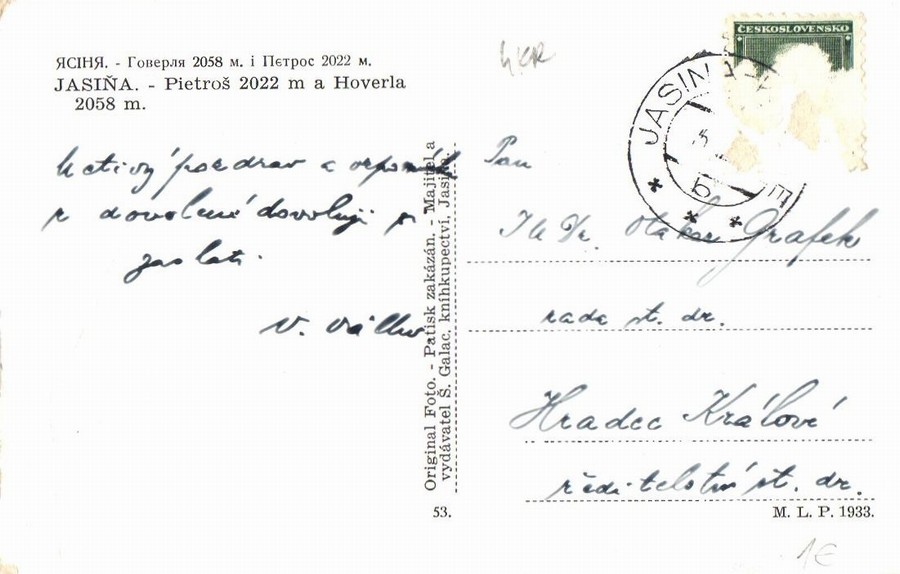 ЯСІНЯ. - Говерля 2058 м. і Пєтрос 2022 м.
JASIŇA. - Pietroš 2022 m a Hoverla
2058 m.
4KR
ČESKOSLOVENSKO
JASIN
b
Uctivý pozdrav a
z dovolené dovoluji si
zaslati.
V.
Original Foto. - Patisk zakázán. - Majitel a
vydávatel Š. Galac, knihkupectví, Jasiňa.
53.
Pan
Dr. Otakar Grafek
rada st. dr.
Hradec Králové
ředitelství st. dr.
M. L. P. 1933.
1€